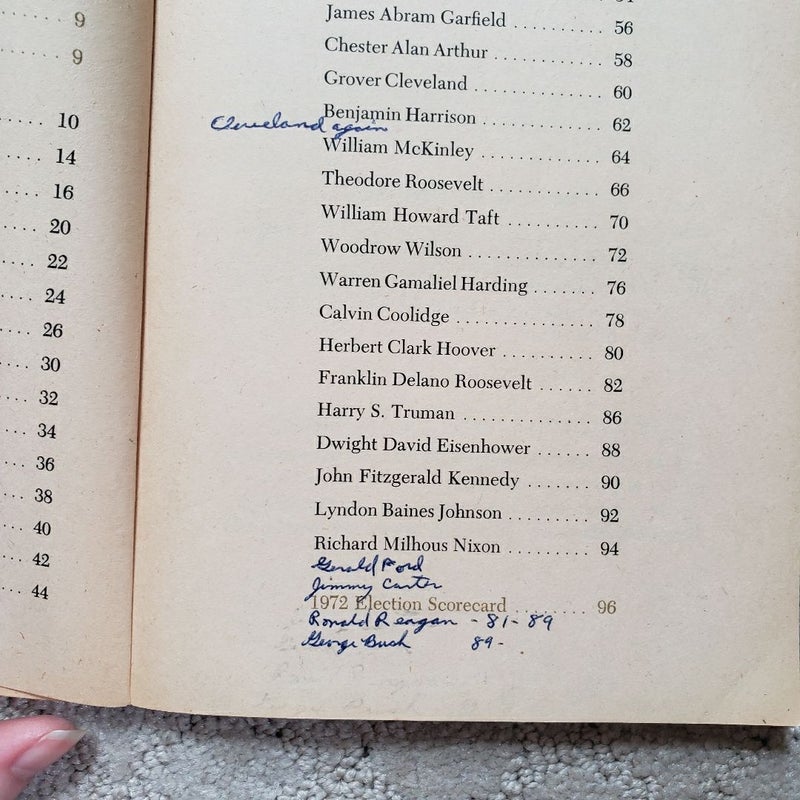 9
9
10
14
16
20
22
24
26
30
32
34
36
38
40
42
44
James Abram Garfield .......... 56
Chester Alan Arthur ............ 58
Grover Cleveland .............. 60
Benjamin Harrison ............. 62
Cleveland again
William McKinley ............. 64
Theodore Roosevelt ............ 66
William Howard Taft .......... 70
Woodrow Wilson .............. 72
Warren Gamaliel Harding ....... 76
Calvin Coolidge ............... 78
Herbert Clark Hoover .......... 80
Franklin Delano Roosevelt ...... 82
Harry S. Truman .............. 86
Dwight David Eisenhower ...... 88
John Fitzgerald Kennedy ....... 90
Lyndon Baines Johnson ......... 92
Richard Milhous Nixon ......... 94
Gerald Ford
Jimmy Carter
1972 Election Scorecard ......... 96
Ronald Reagan - 81- 89
George Bush 89-